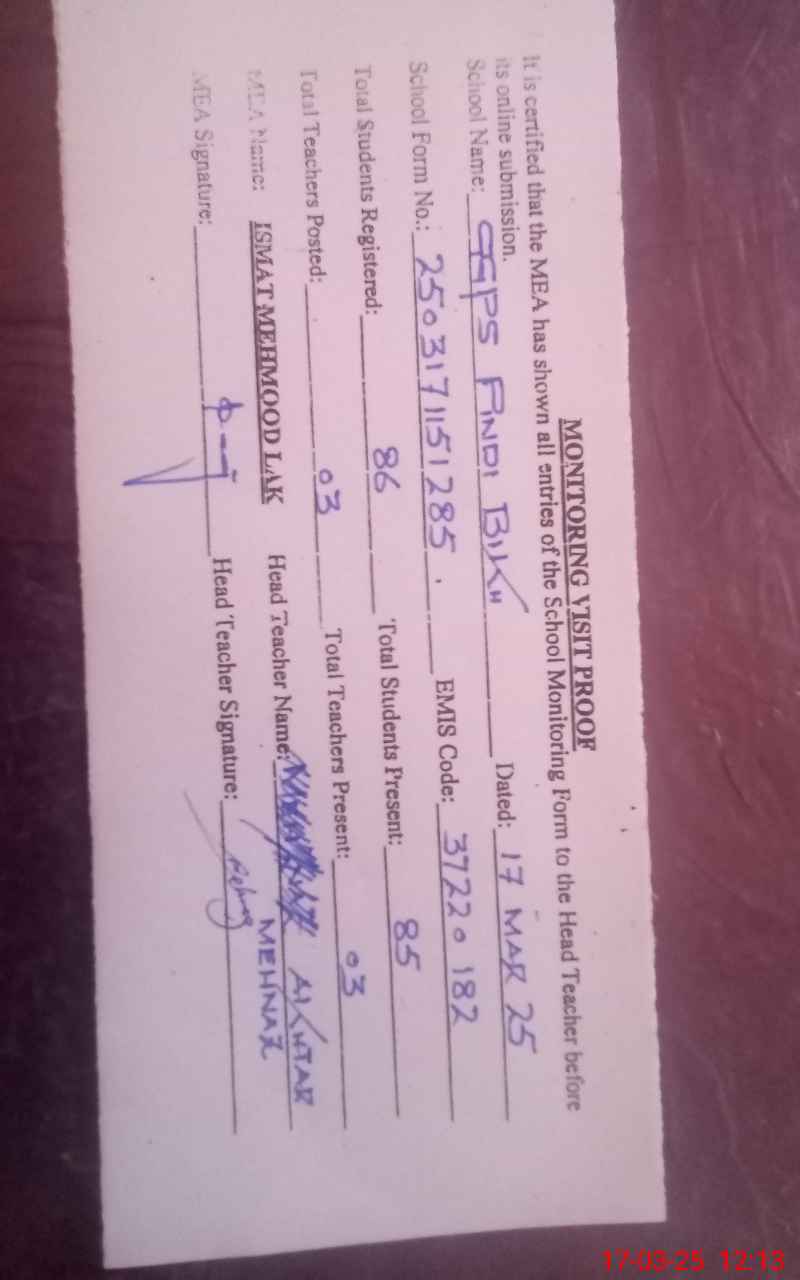 MONITORING VISIT PROOF
It is certified that the MEA has shown all entries of the School Monitoring Form to the Head Teacher before
its online submission.
School Name: GGPS PINDI BIKH Dated: 17 MAR 25
School Form No.: 2503171151285 EMIS Code: 37220182
Total Students Registered: 86 Total Students Present: 85
Total Teachers Posted: 03 Total Teachers Present: 03
MEA Name: ISMAT MEHMOOD LAK Head Teacher Name: AKHTAR
MEHNAZ
MEA Signature: Head Teacher Signature:
17-03-25 12:13